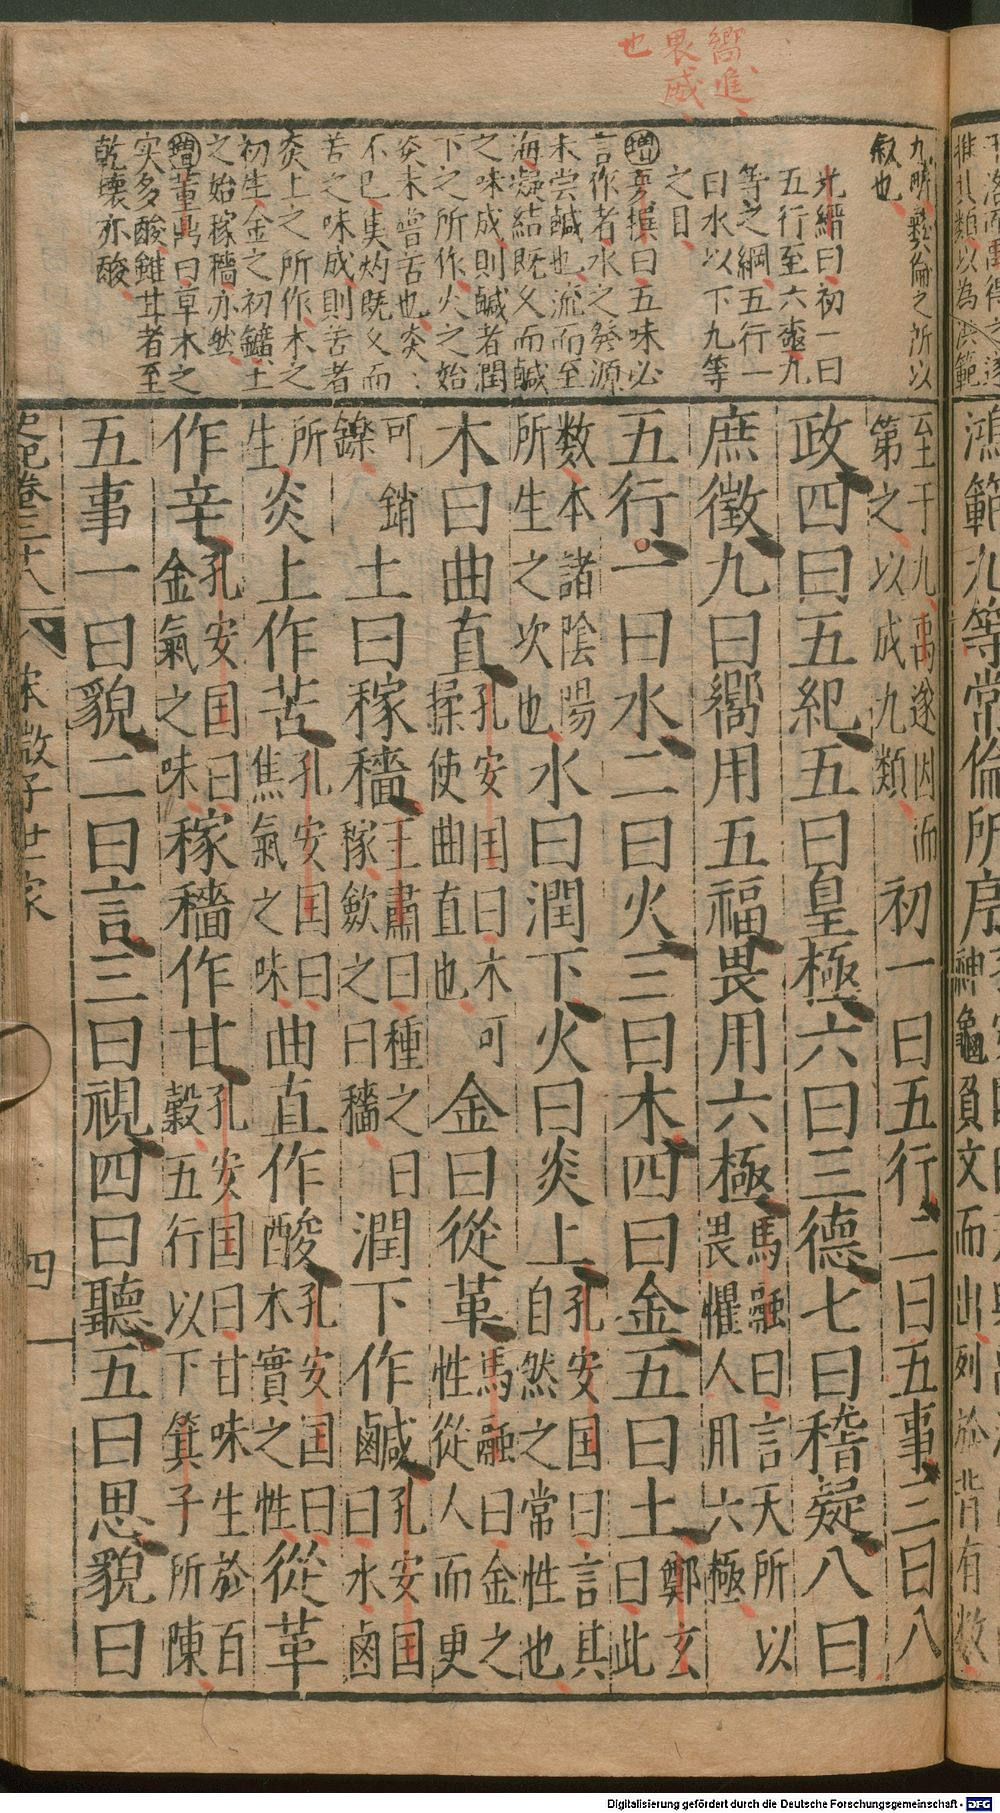 嚮進
畏威
也
至于九禹遂因而
第之以成九類
初一曰五行二曰五事三曰八
政四曰五紀五曰皇極六曰三德七曰稽疑八曰
庶徵九曰嚮用五福畏用六極
馬融曰言天所以
畏懼人用六極
五行一曰水二曰火三曰木四曰金五曰土
鄭玄
曰此
数本諸陰陽
所生之次也
水曰潤下火曰炎上
孔安国曰言其
自然之常性也
木曰曲直
孔安国曰木可
揉使曲直也
金曰從革
馬融曰金之
性從人而更
可銷
鑠
土曰稼穡
王肅曰種之曰
稼歛之曰穡
潤下作鹹
孔安国
曰水鹵
所
生
炎上作苦
孔安国曰
焦氣之味
曲直作酸
孔安国曰
木實之性
從革
作辛
孔安国曰
金氣之味
稼穡作甘
孔安国曰甘味生於百
穀五行以下箕子所陳
五事一曰貌二曰言三曰視四曰聽五曰思貌曰
九疇彝倫之所以
叙也
光縉曰初一曰
五行至六極九
等之綱五行一
曰水以下九等
之目
増夏撰曰五味必
言作者水之發源
未嘗鹹也流而至
海凝結既久而鹹
之味成則鹹者潤
下之所作火之始
炎未嘗苦也炎炎
不已焦灼既久而
苦之味成則苦者
炎上之所作木之
初生金之初鑛土
之始稼穡亦然
増董鼎曰草木之
実多酸雖甘者至
乾壞亦酸
史記卷三十八
宋微子世家
四
Digitalisierung gefördert durch die Deutsche Forschungsgemeinschaft - DFG